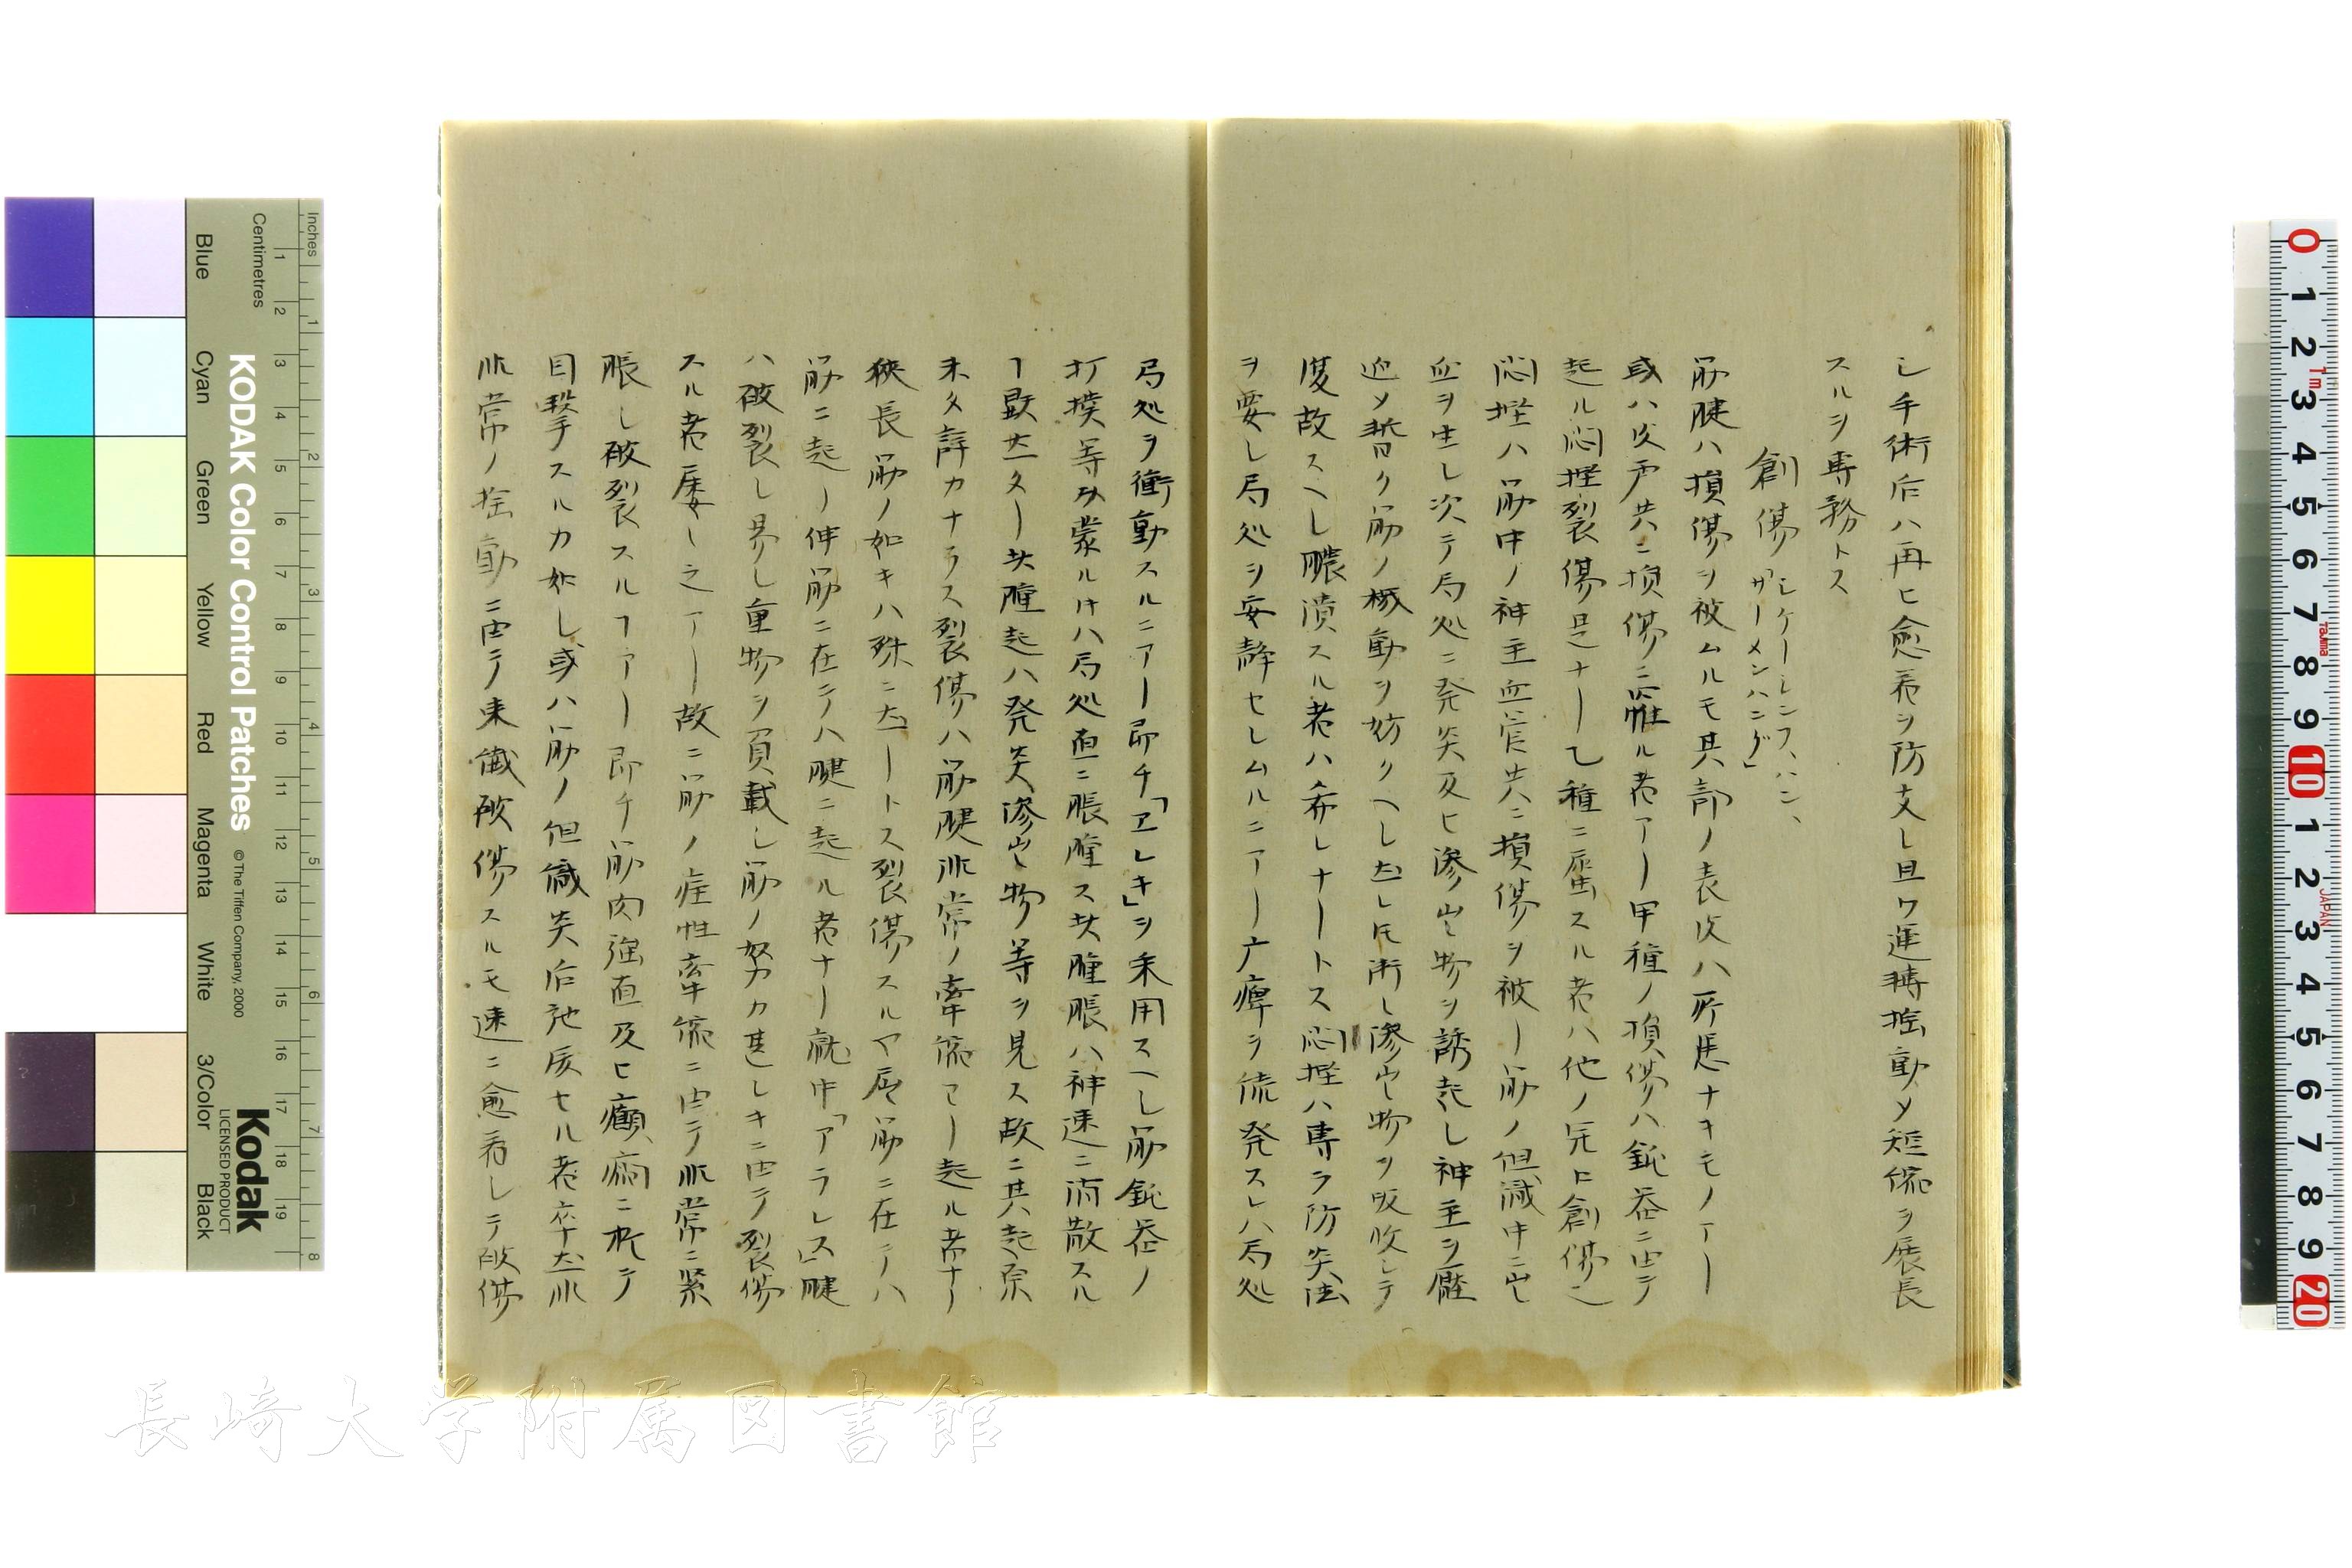 シ手術后ハ再ヒ愈着ヲ防支シ且ツ運轉揺動メ短縮ヲ展長
スルヲ専務トス
創傷「シケーシンフ、ハン、
ザーメンハング」
筋腱ハ損傷ヲ被ムルモ其部ノ表皮ハ所患ナキモノアー
或ハ皮戸共ニ損傷ニ罹ル者アー甲種ノ損傷ハ鈍器ニ由テ
起ル悶挫裂傷是ナー乙種ニ属スル者ハ他ノ凡ヒ創傷也
悶挫ハ筋中ノ神主血管共ニ損傷ヲ被ー筋ノ組織中ニ出
血ヲ生シ次テ局処ニ発炎及ヒ滲出物ヲ誘起シ神主ヲ壓
迫メ暫ク筋ノ機動ヲ妨クヘシ然レ𪜈術シ滲出物ヲ吸收シテ
復故スヘシ膿潰スル者ハ希レナートス悶挫ハ専ラ防炎法
ヲ要シ局処ヲ安静セシムルニアー广痺ヲ続発スレハ局処
局処ヲ衝動スルニアー即チ「ヱレキ」ヲ釆用スヘシ筋鈍器ノ
打撲等ヲ蒙ル𪜈ハ局処直ニ脹腫ス其腫脹ハ神速ニ消散スル
ヿ歇然ター其腫起ハ発炎滲出物等ヲ見ス故ニ其起原
未タ詳カナラス裂傷ハ筋腱非常ノ牽縮ヨー起ル者ナー
狹長筋ノ如キハ殊ニ然ートス裂傷スルヤ屈筋ニ在テハ
筋ニ起ー伸筋ニ在テハ腱ニ起ル者ナー就中「アラレス」腱
ハ破裂シ易シ重物ヲ負載シ筋ノ努力甚シキニ由テ裂傷
スル者屡〻之アー故ニ筋ノ痙性牽縮ニ由テ非常ニ緊
脹シ破裂スルヿアー即チ筋肉強直及ヒ癲癇ニ於テ
目撃スルカ如シ或ハ筋ノ組織炎后弛
非常ノ揺動ニ由テ来
破傷スルモ速ニ愈着シテ破傷
KODAK Color Control Patches
© The Tiffen Company, 2000
Kodak
LICENSED PRODUCT
Inches
Centimetres
Blue
Cyan
Green
Yellow
Red
Magenta
White
3/Color
Black
長崎大学附属図書館